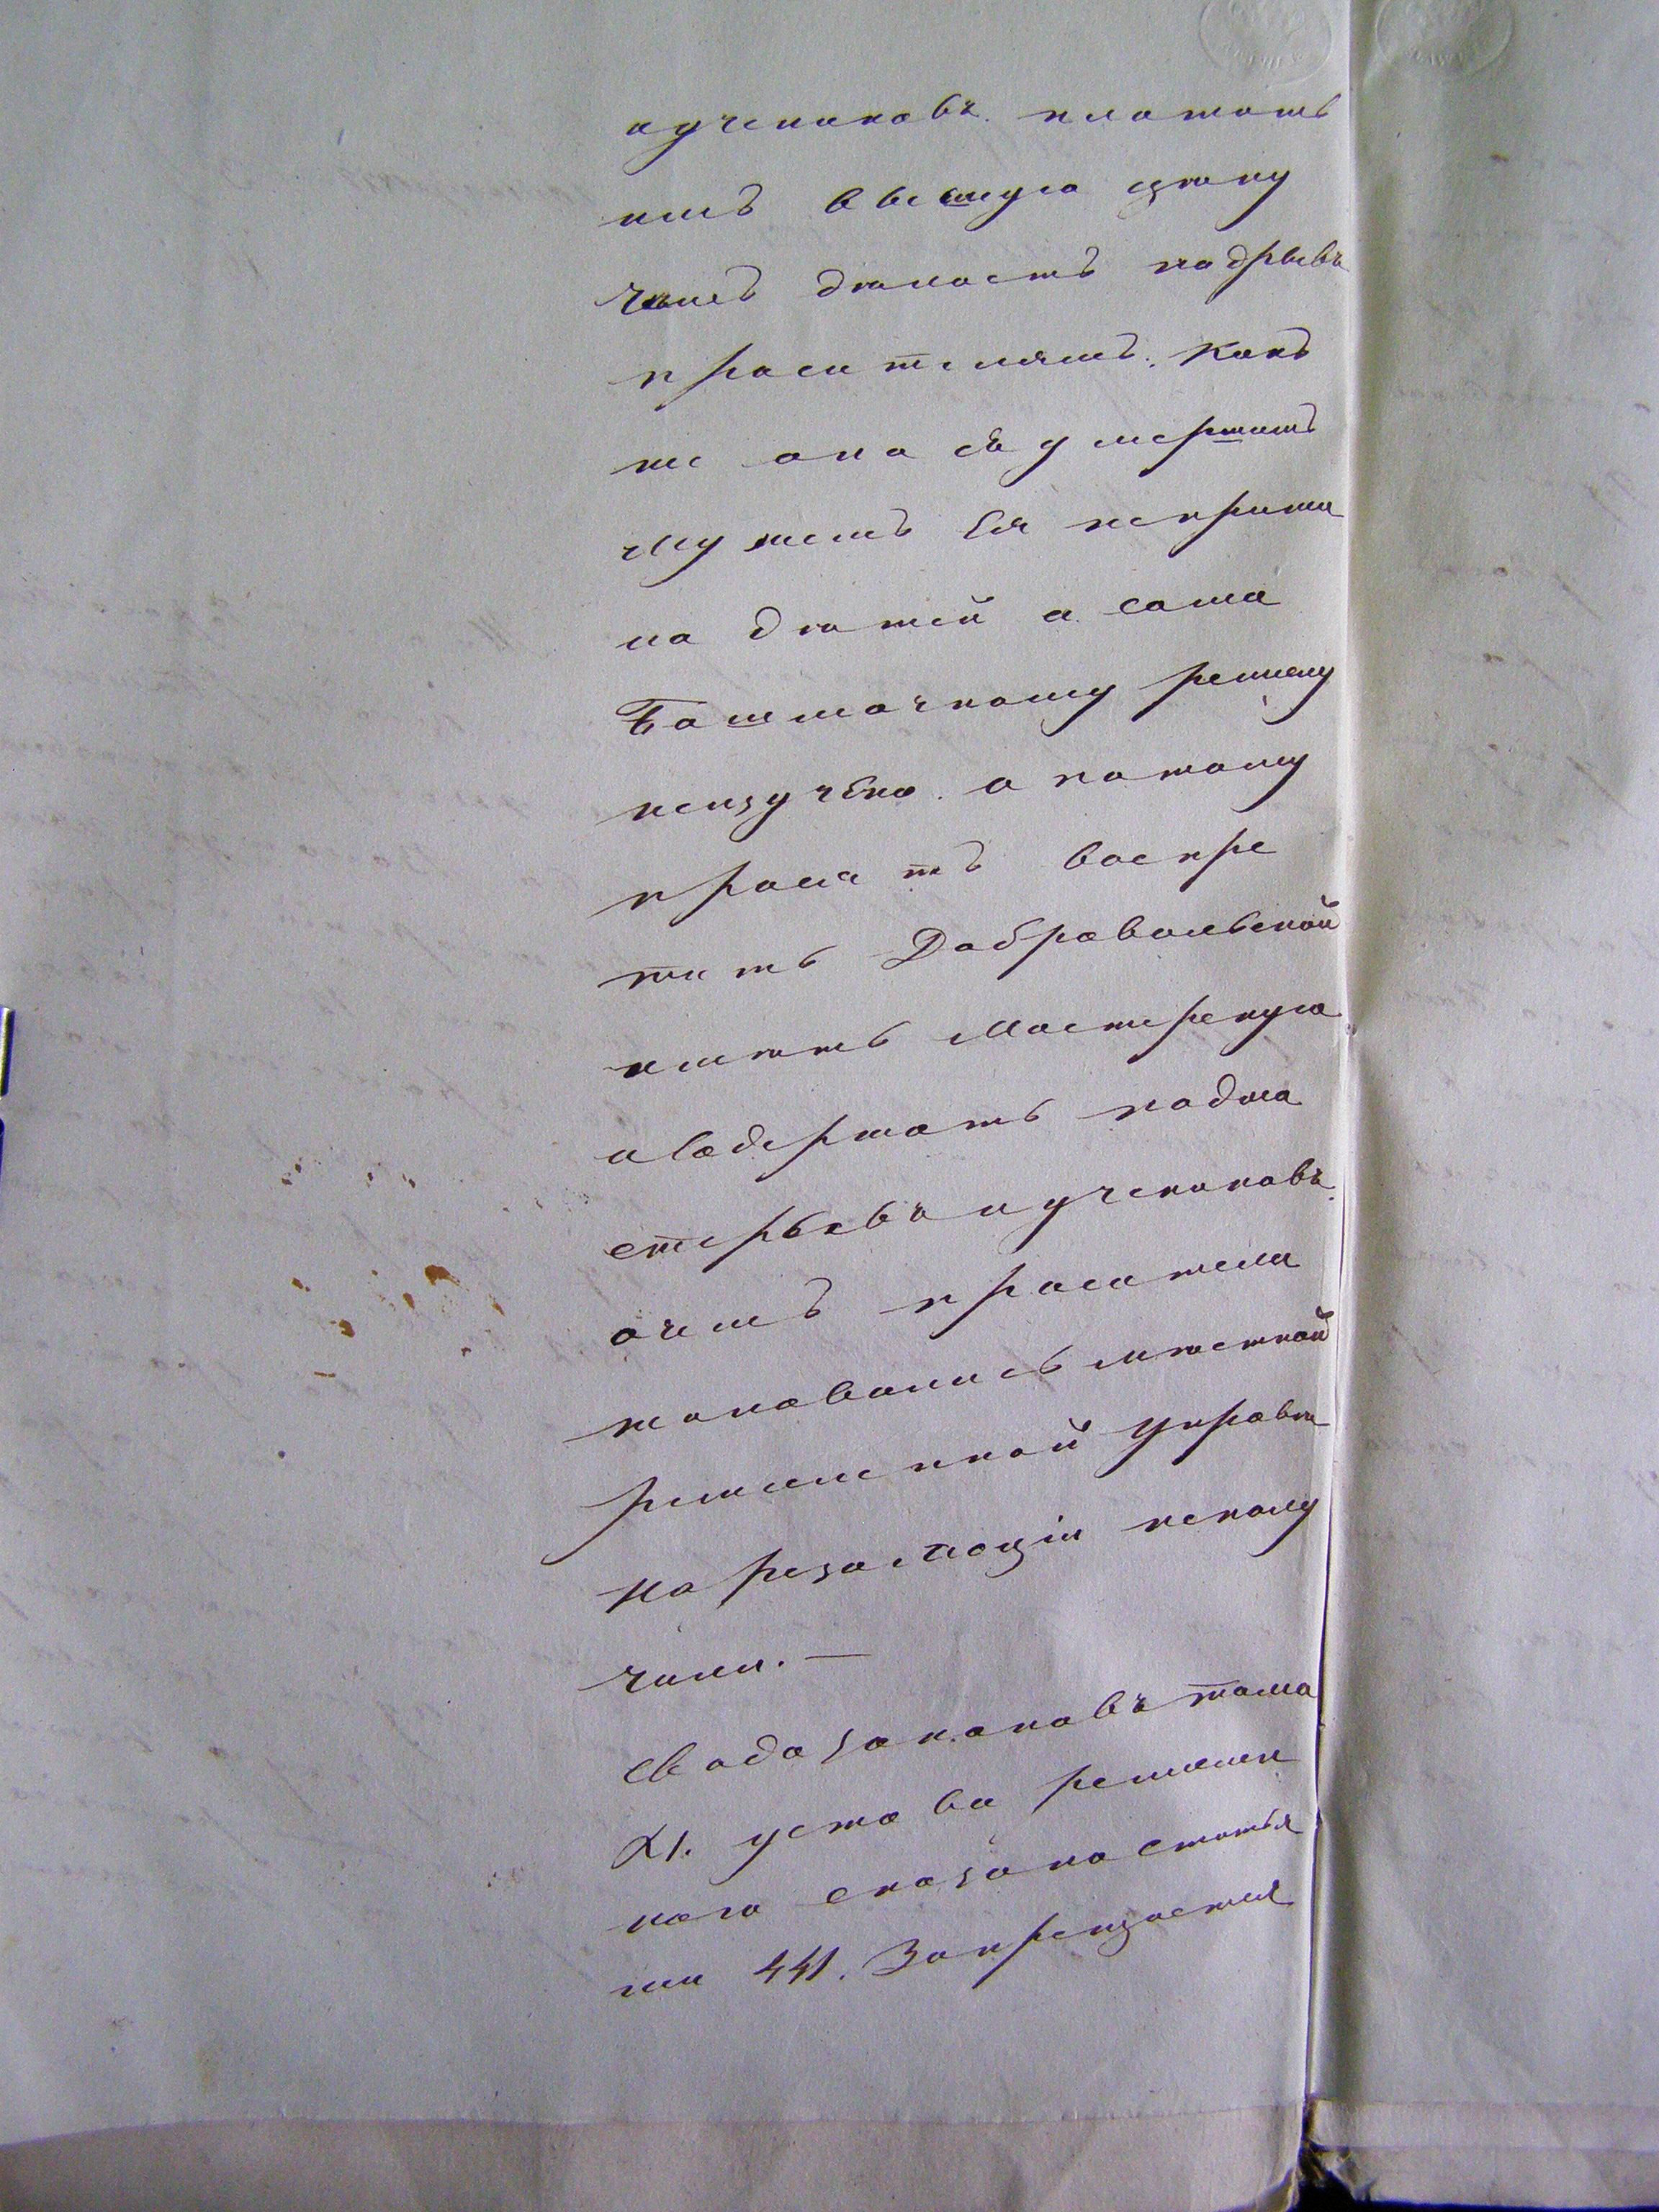 иучениковъ. платить
имъ высшую цѣну
чѣмъ дѣлаетъ подрывъ
просителямъ. какъ
же она съ умершимъ
мужемъ Ея неприжи
ла дѣтей а сама
Башмачному ремеслу
неизучена. а потому
просятъ воспре
тить Добровольской
имѣть мастерскую
исодержать подма
стерьевъ и учениковъ.
очемъ просители
жаловались мѣстной
ремесленной управѣ
но резолюціи неполу
чили. —
Свода законовъ тома
XI. устава ремеслен
наго сказано статья
ми 441. Запрещается